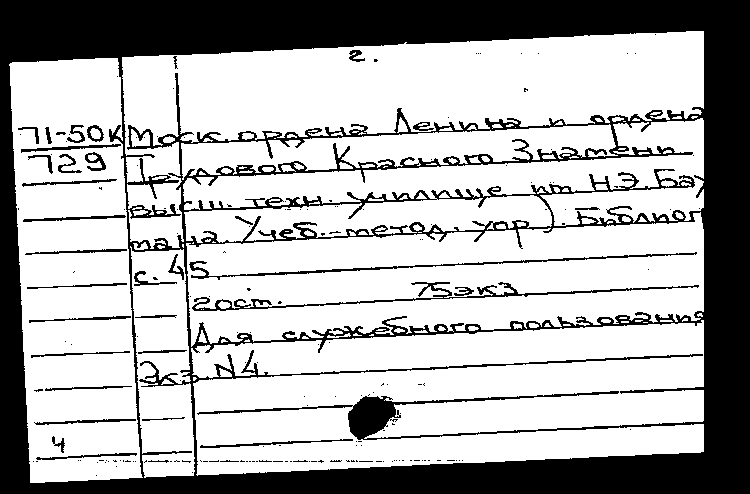 2.
71-50К Моск. ордена Ленина и ордена
729 Трудового Красного Знамени
высш. техн. училище им Н.Э. Бау
мана. Учеб.-метод. упр). Библиог
с. 45.
гост. 75экз.
Для служебного пользования
Экз N4.
4